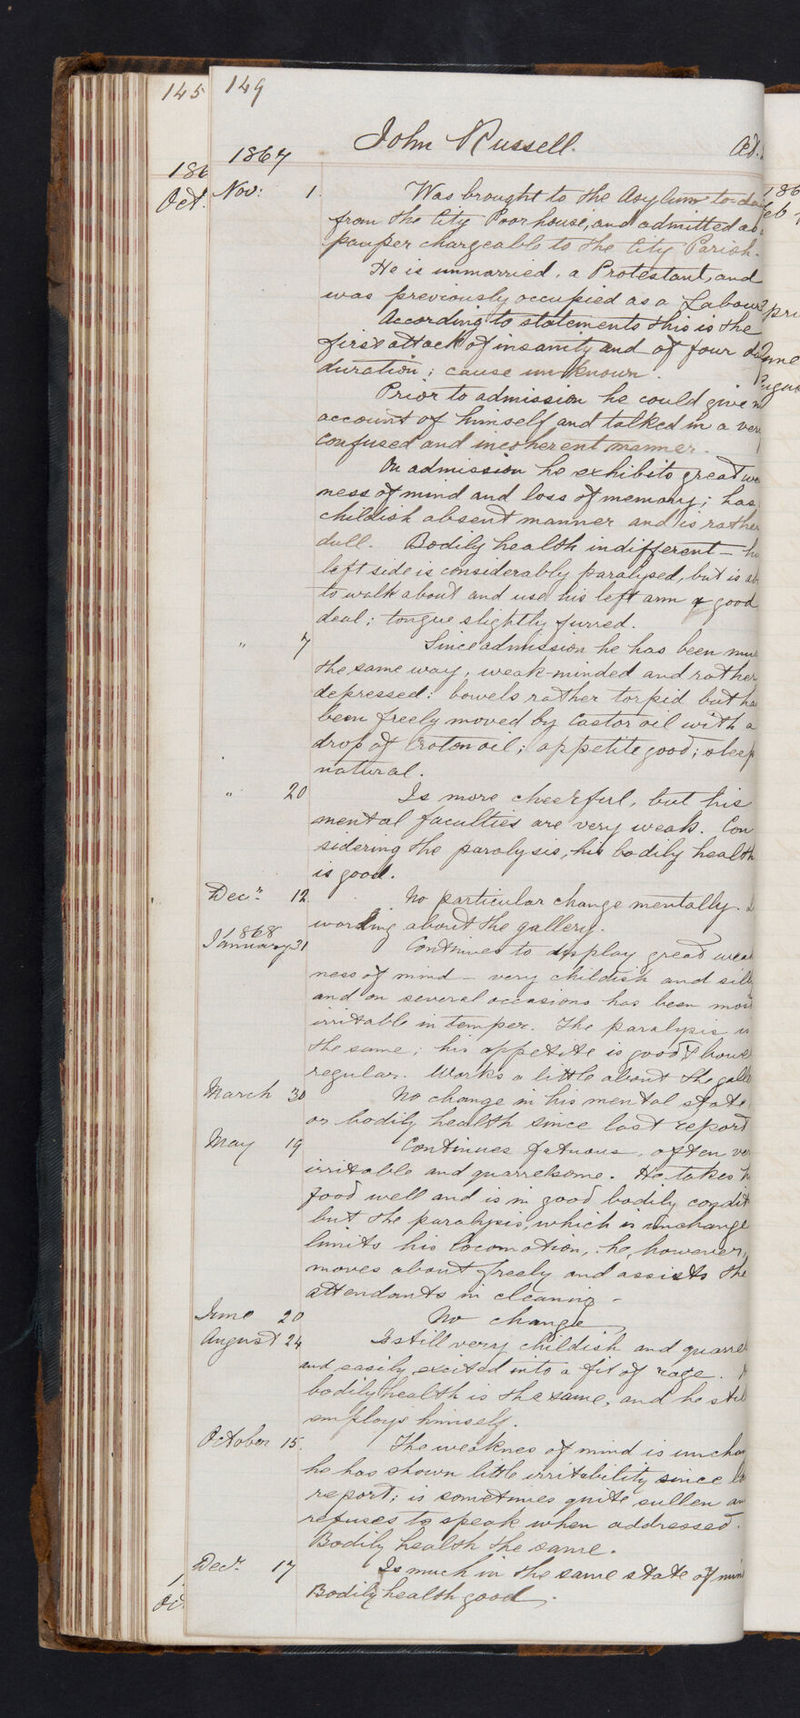 145 149
John Russell. Æt.
1867
186
Oct. Nov: 1. Was brought to the Asylum to-da
from the City Poorhouse, and admitted as
pauper chargeable to the City Parish.
He is unmarried, a Protestant, and
was previously occupied as a Labour
According to statements this is the
first attack of insanity and of four da
duration; cause unknown.
Prior to admission he could give n
account of himself and talked in a ver
confused and incoherent manner.
On admission he exhibits great we
ness of mind and loss of memory; has
childish absent manner and is rather
dull. Bodily health indifferent – h
left side is considerably paralysed, but is ab
to walk about and use his left arm a good
deal; tongue slightly furred.
" 7 Since admission he has been mu
the same way, weak-minded and rather
depressed: bowels rather torpid but ha
been freely moved by Castor oil with a
drop of Croton oil; appetite good; sleep
natural.
" 20 Is more cheerful, but his
mental faculties are very weak. Con
sidering the paralysis, his bodily health
is good.
Decr. 12 No particular change mentally. I
working about the gallery.
1868
January 31 Continues to display great weak
ness of mind – very childish and sill
and on several occasions has been mos
irritable in temper. The paralysis is
the same, his appetite is good & bowel
regular. Works a little about the galle
March 30 No change in his mental state
or bodily health since last report
May 19 Continues fatuous, often ver
irritable and quarrelsome. He takes h
food well and is in good bodily condit
but the paralysis, which is unchange
limits his locomotion, he, however,
moves about freely and assists the
attendants in cleaning –
June 20 No change
August 24 Is still very childish and quarrel
and easily excited into a fit of rage. H
bodily health is the same, and he stil
employs himself.
October 15. The weaknes of mind is uncha
he has shown little irritability since la
report; is sometimes quite sullen an
refuses to speak when addressed.
Bodily health the same.
Decr. 17 Is much in the same state of min
Bodily health good.